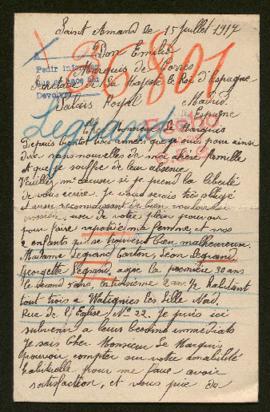 Saint Amand le 15 Juillet 1917
Don Emilio
Marquis de Torres
Secrétaire de Sa Majesté le Roi d'Espagne
Palais Royal Madrid
Espagne
Legrand
Monsieur le Marquis
Depuis bientôt trois années que je suis pour ainsi
dire sans nouvelles de ma chère famille
et que je souffre de leur absence
Veuillez m'excuser si je prend la liberté
de vous écrire. Je vous serais très obligé
et vous reconnaissant de bien vouloir
user de votre plein pouvoir
pour faire rapatrier ma femme, et mes
2 enfants qui se trouvent bien malheureux.
Madame Legrand Carlon, Léon Legrand,
Georgette Legrand, agée la première 30 ans
le second 7 ans, la troisième 2 ans ½ habitant
tout trois a Watignies les Lille Nord.
Rue de l'Eglise No 22. Je puis ici
subvenir a leurs besoins immédiats
Je sais Cher Monsieur Le Marquis
pouvoir compter sur votre amabilité
habituelle pour me faire avoir
satisfaction, et vous prie de